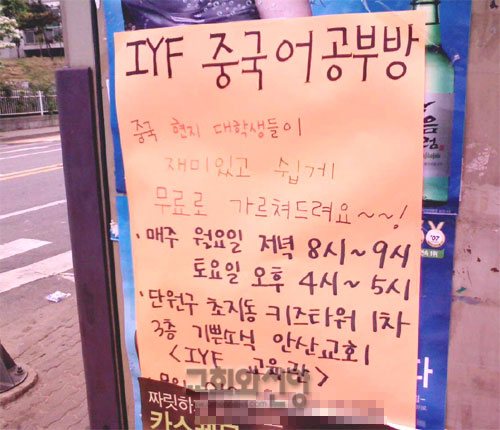 IYF 중국어공부방
중국 현지 대학생들이
재미있고 쉽게
무료로 가르쳐드려요~~!
· 매주 월요일 저녁 8시~9시
토요일 오후 4시~5시
· 단원구 초지동 키즈타워 1차
3층 기쁜소식 안산교회
<IYF 교육관>
교회와신앙
짜릿하